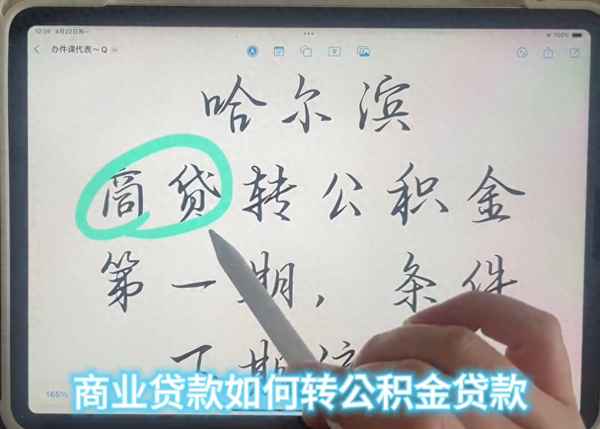 12:39 4月22日周一
100%
办件课代表～Q
哈尔滨
商贷转公积金
第一期，条件
下期
165%
商业贷款如何转公积金贷款